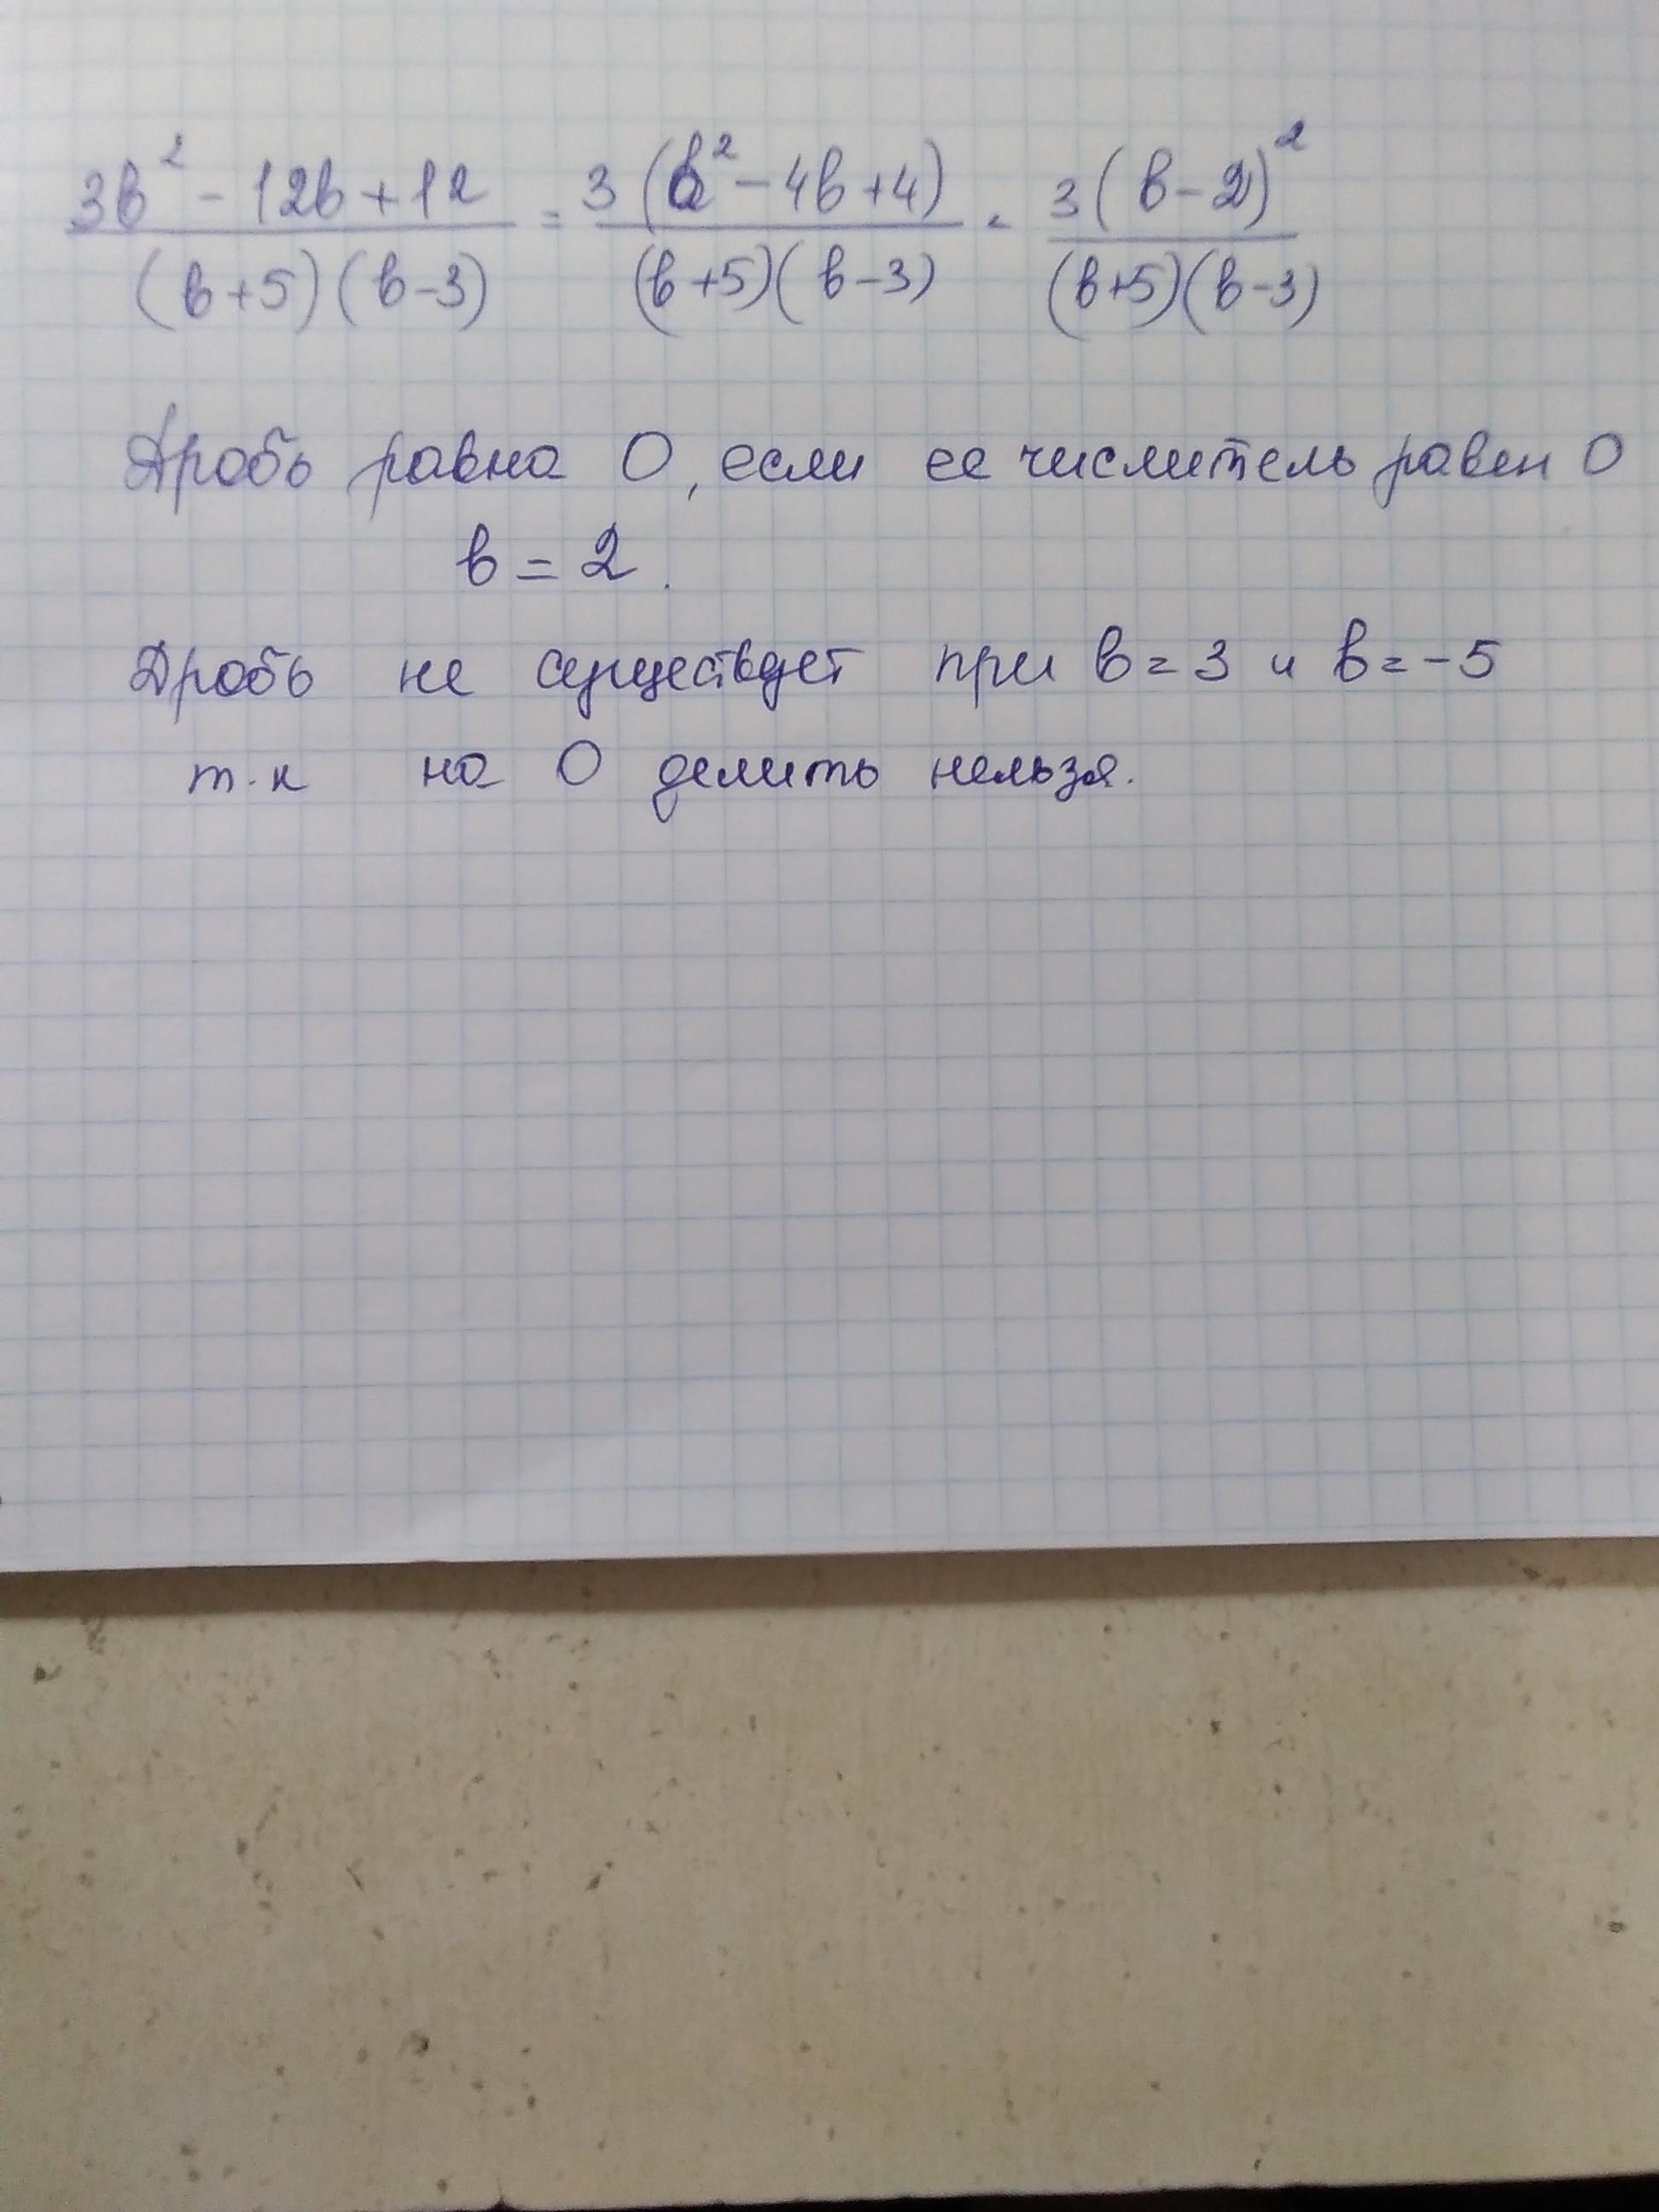 3в² - 12в + 12 / (в+5)(в-3) = 3(в² - 4в + 4) / (в+5)(в-3) = 3(в-2)² / (в+5)(в-3)
Дробь равна 0, если ее числитель равен 0
в = 2.
Дробь не существует при в = 3 и в = -5
т.к на 0 делить нельзя.